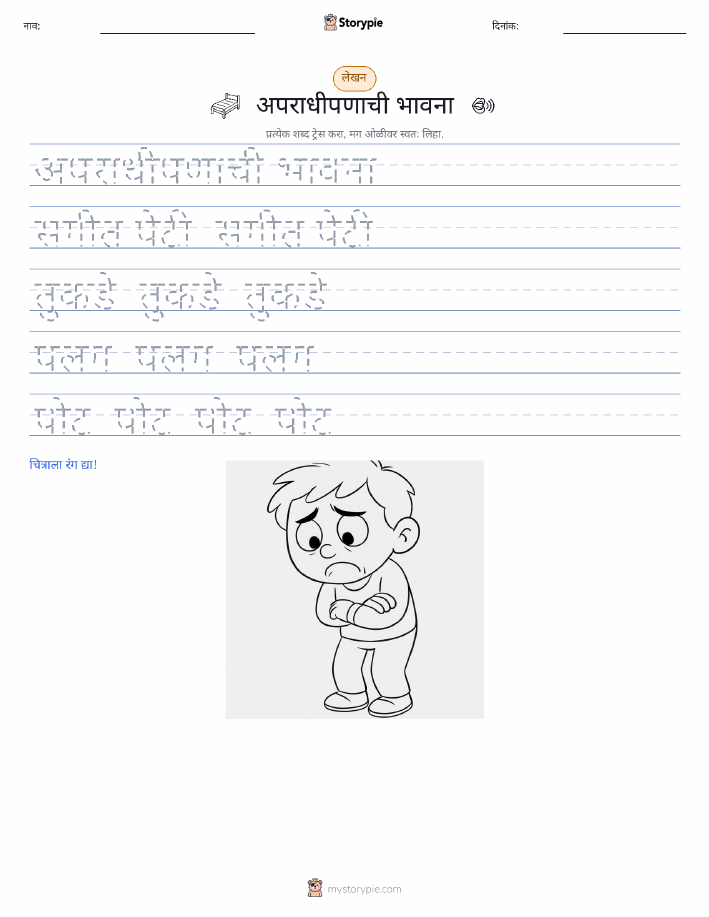 नाव:
Storypie
दिनांक:
लेखन
अपराधीपणाची भावना
प्रत्येक शब्द ट्रेस करा, मग ओळीवर स्वतः लिहा.
अपराधीपणाची भावना
संगीत पेटी संगीत पेटी
तुकडे तुकडे तुकडे
पलंग पलंग पलंग
पोट पोट पोट पोट
चित्राला रंग द्या!
mystorypie.com